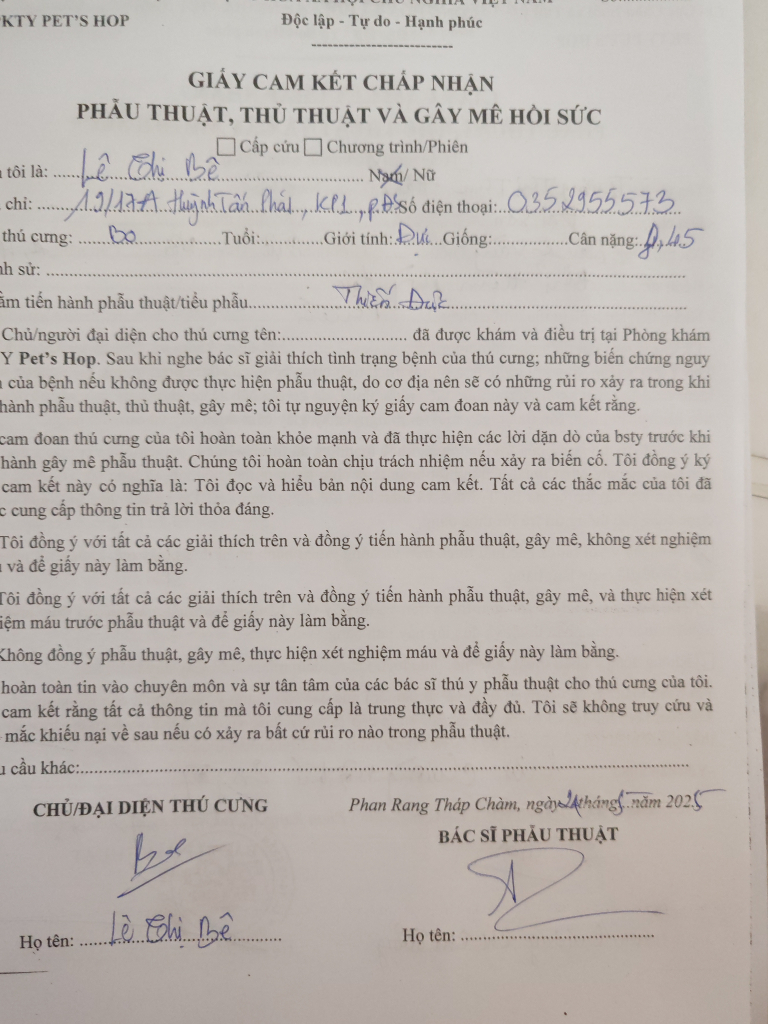 KTY PET'S HOP
Độc lập - Tự do - Hạnh phúc
GIẤY CAM KẾT CHẤP NHẬN
PHẪU THUẬT, THỦ THUẬT VÀ GÂY MÊ HỒI SỨC
Cấp cứu Chương trình/Phiên
tôi là: Lê Thị Bê Nam/ Nữ
chỉ: 19/17A Huỳnh Tấn Phát, KP1, Số điện thoại: 0352955573
thú cưng: Bo Tuổi: Giới tính: Đực Giống: Cân nặng: 8,45
nh sử:
ầm tiến hành phẫu thuật/tiểu phẫu Thiến Đực
Chủ/người đại diện cho thú cưng tên: đã được khám và điều trị tại Phòng khám
Y Pet's Hop. Sau khi nghe bác sĩ giải thích tình trạng bệnh của thú cưng; những biến chứng nguy
của bệnh nếu không được thực hiện phẫu thuật, do cơ địa nên sẽ có những rủi ro xảy ra trong khi
hành phẫu thuật, thủ thuật, gây mê; tôi tự nguyện ký giấy cam đoan này và cam kết rằng.
cam đoan thú cưng của tôi hoàn toàn khỏe mạnh và đã thực hiện các lời dặn dò của bsty trước khi
hành gây mê phẫu thuật. Chúng tôi hoàn toàn chịu trách nhiệm nếu xảy ra biến cố. Tôi đồng ý ký
cam kết này có nghĩa là: Tôi đọc và hiểu bản nội dung cam kết. Tất cả các thắc mắc của tôi đã
c cung cấp thông tin trả lời thỏa đáng.
Tôi đồng ý với tất cả các giải thích trên và đồng ý tiến hành phẫu thuật, gây mê, không xét nghiệm
và để giấy này làm bằng.
Tôi đồng ý với tất cả các giải thích trên và đồng ý tiến hành phẫu thuật, gây mê, và thực hiện xét
iệm máu trước phẫu thuật và để giấy này làm bằng.
Không đồng ý phẫu thuật, gây mê, thực hiện xét nghiệm máu và để giấy này làm bằng.
hoàn toàn tin vào chuyên môn và sự tân tâm của các bác sĩ thú y phẫu thuật cho thú cưng của tôi.
cam kết rằng tất cả thông tin mà tôi cung cấp là trung thực và đầy đủ. Tôi sẽ không truy cứu và
mắc khiếu nại về sau nếu có xảy ra bất cứ rủi ro nào trong phẫu thuật.
u cầu khác:
CHỦ/ĐẠI DIỆN THÚ CƯNG
Phan Rang Tháp Chàm, ngày tháng năm 2025
BÁC SĨ PHẪU THUẬT
Họ tên: Lê Thị Bê
Họ tên: